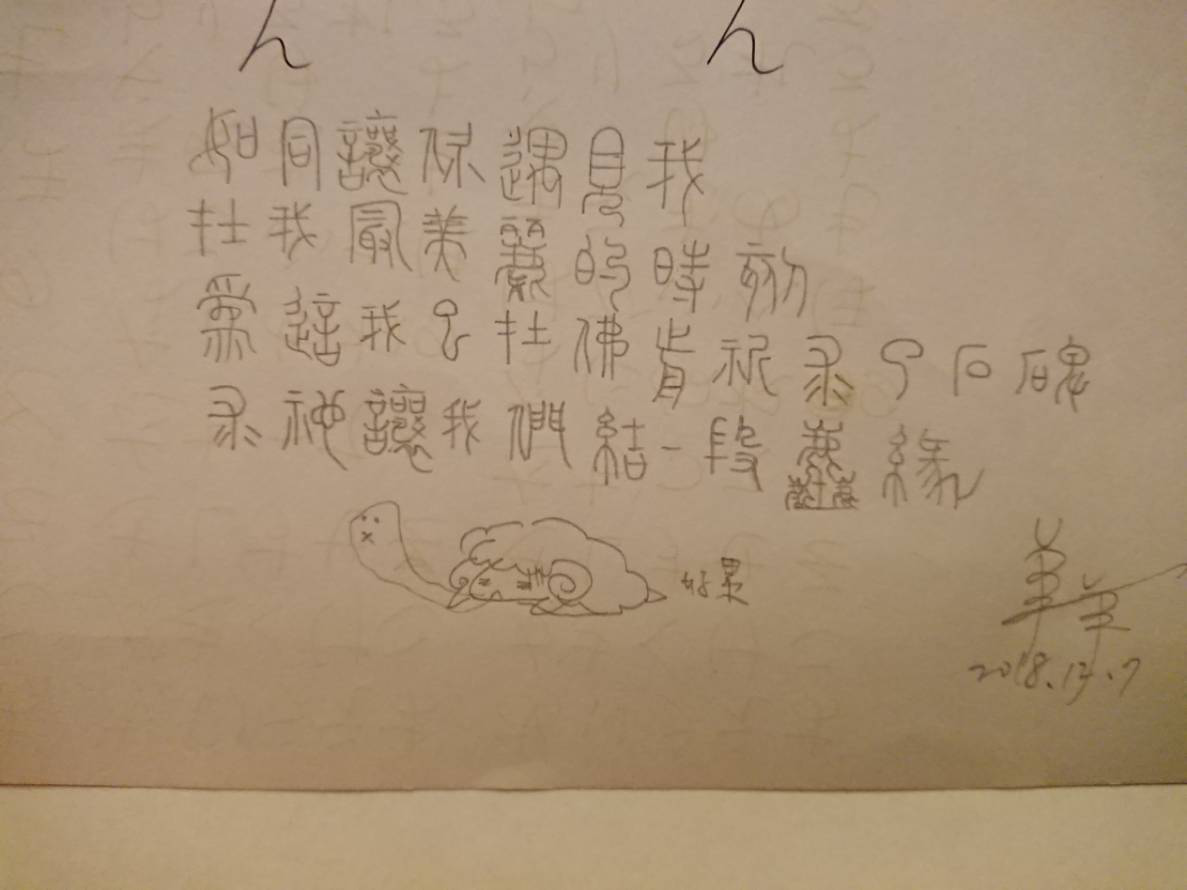 ん ん
如同讓你遇見我
在我最美麗的時刻
為這我已在佛前祈求了石碑
求神讓我們結一段塵緣
好累
羊羊
2018.12.7